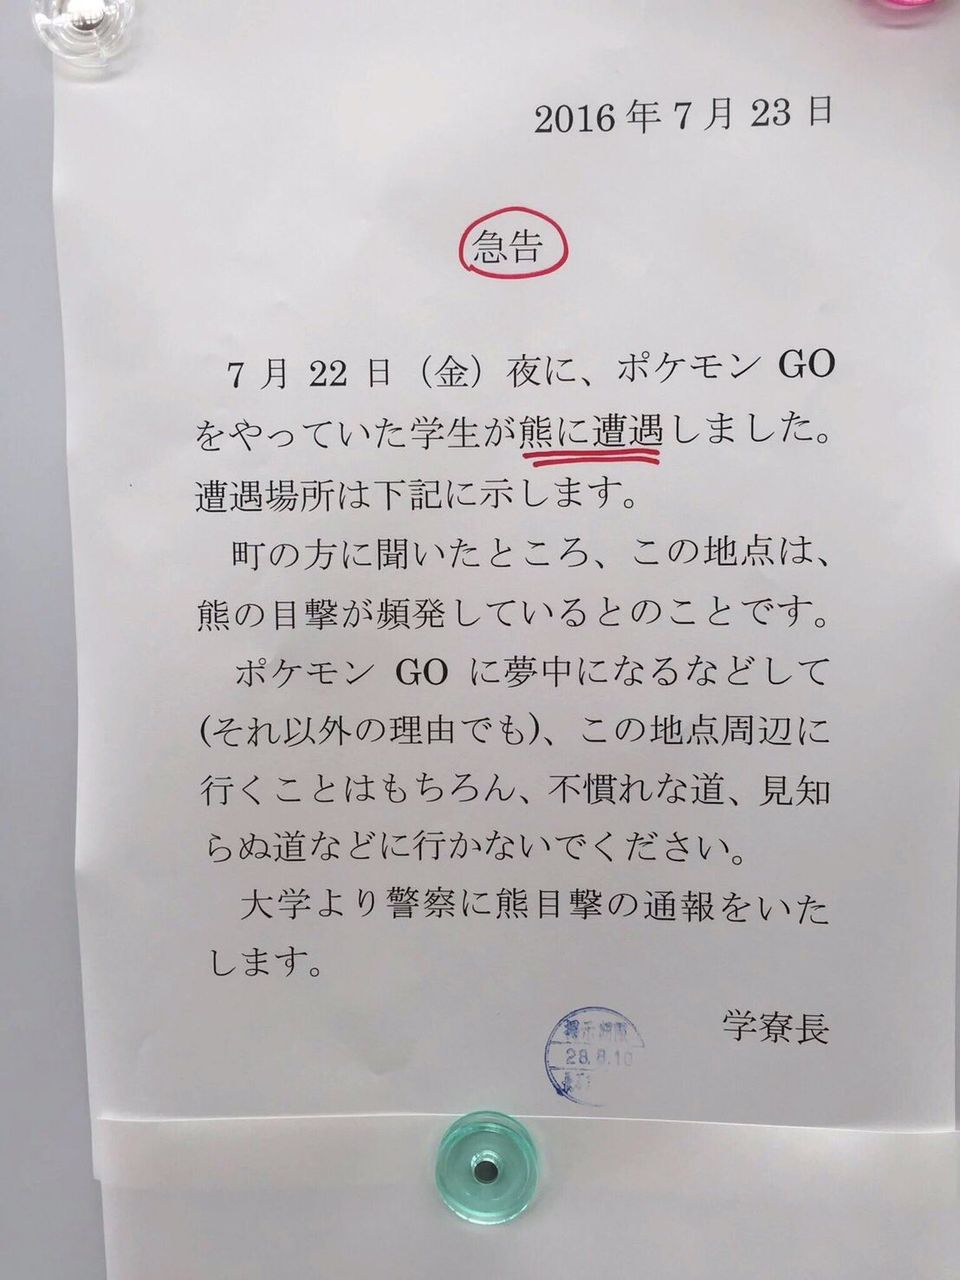 2016年7月23日
急告
7月22日（金）夜に、ポケモンGO
をやっていた学生が熊に遭遇しました。
遭遇場所は下記に示します。
町の方に聞いたところ、この地点は、
熊の目撃が頻発しているとのことです。
ポケモンGOに夢中になるなどして
(それ以外の理由でも)、この地点周辺に
行くことはもちろん、不慣れな道、見知
らぬ道などに行かないでください。
大学より警察に熊目撃の通報をいた
します。
学寮長
掲示期限
28.8.10